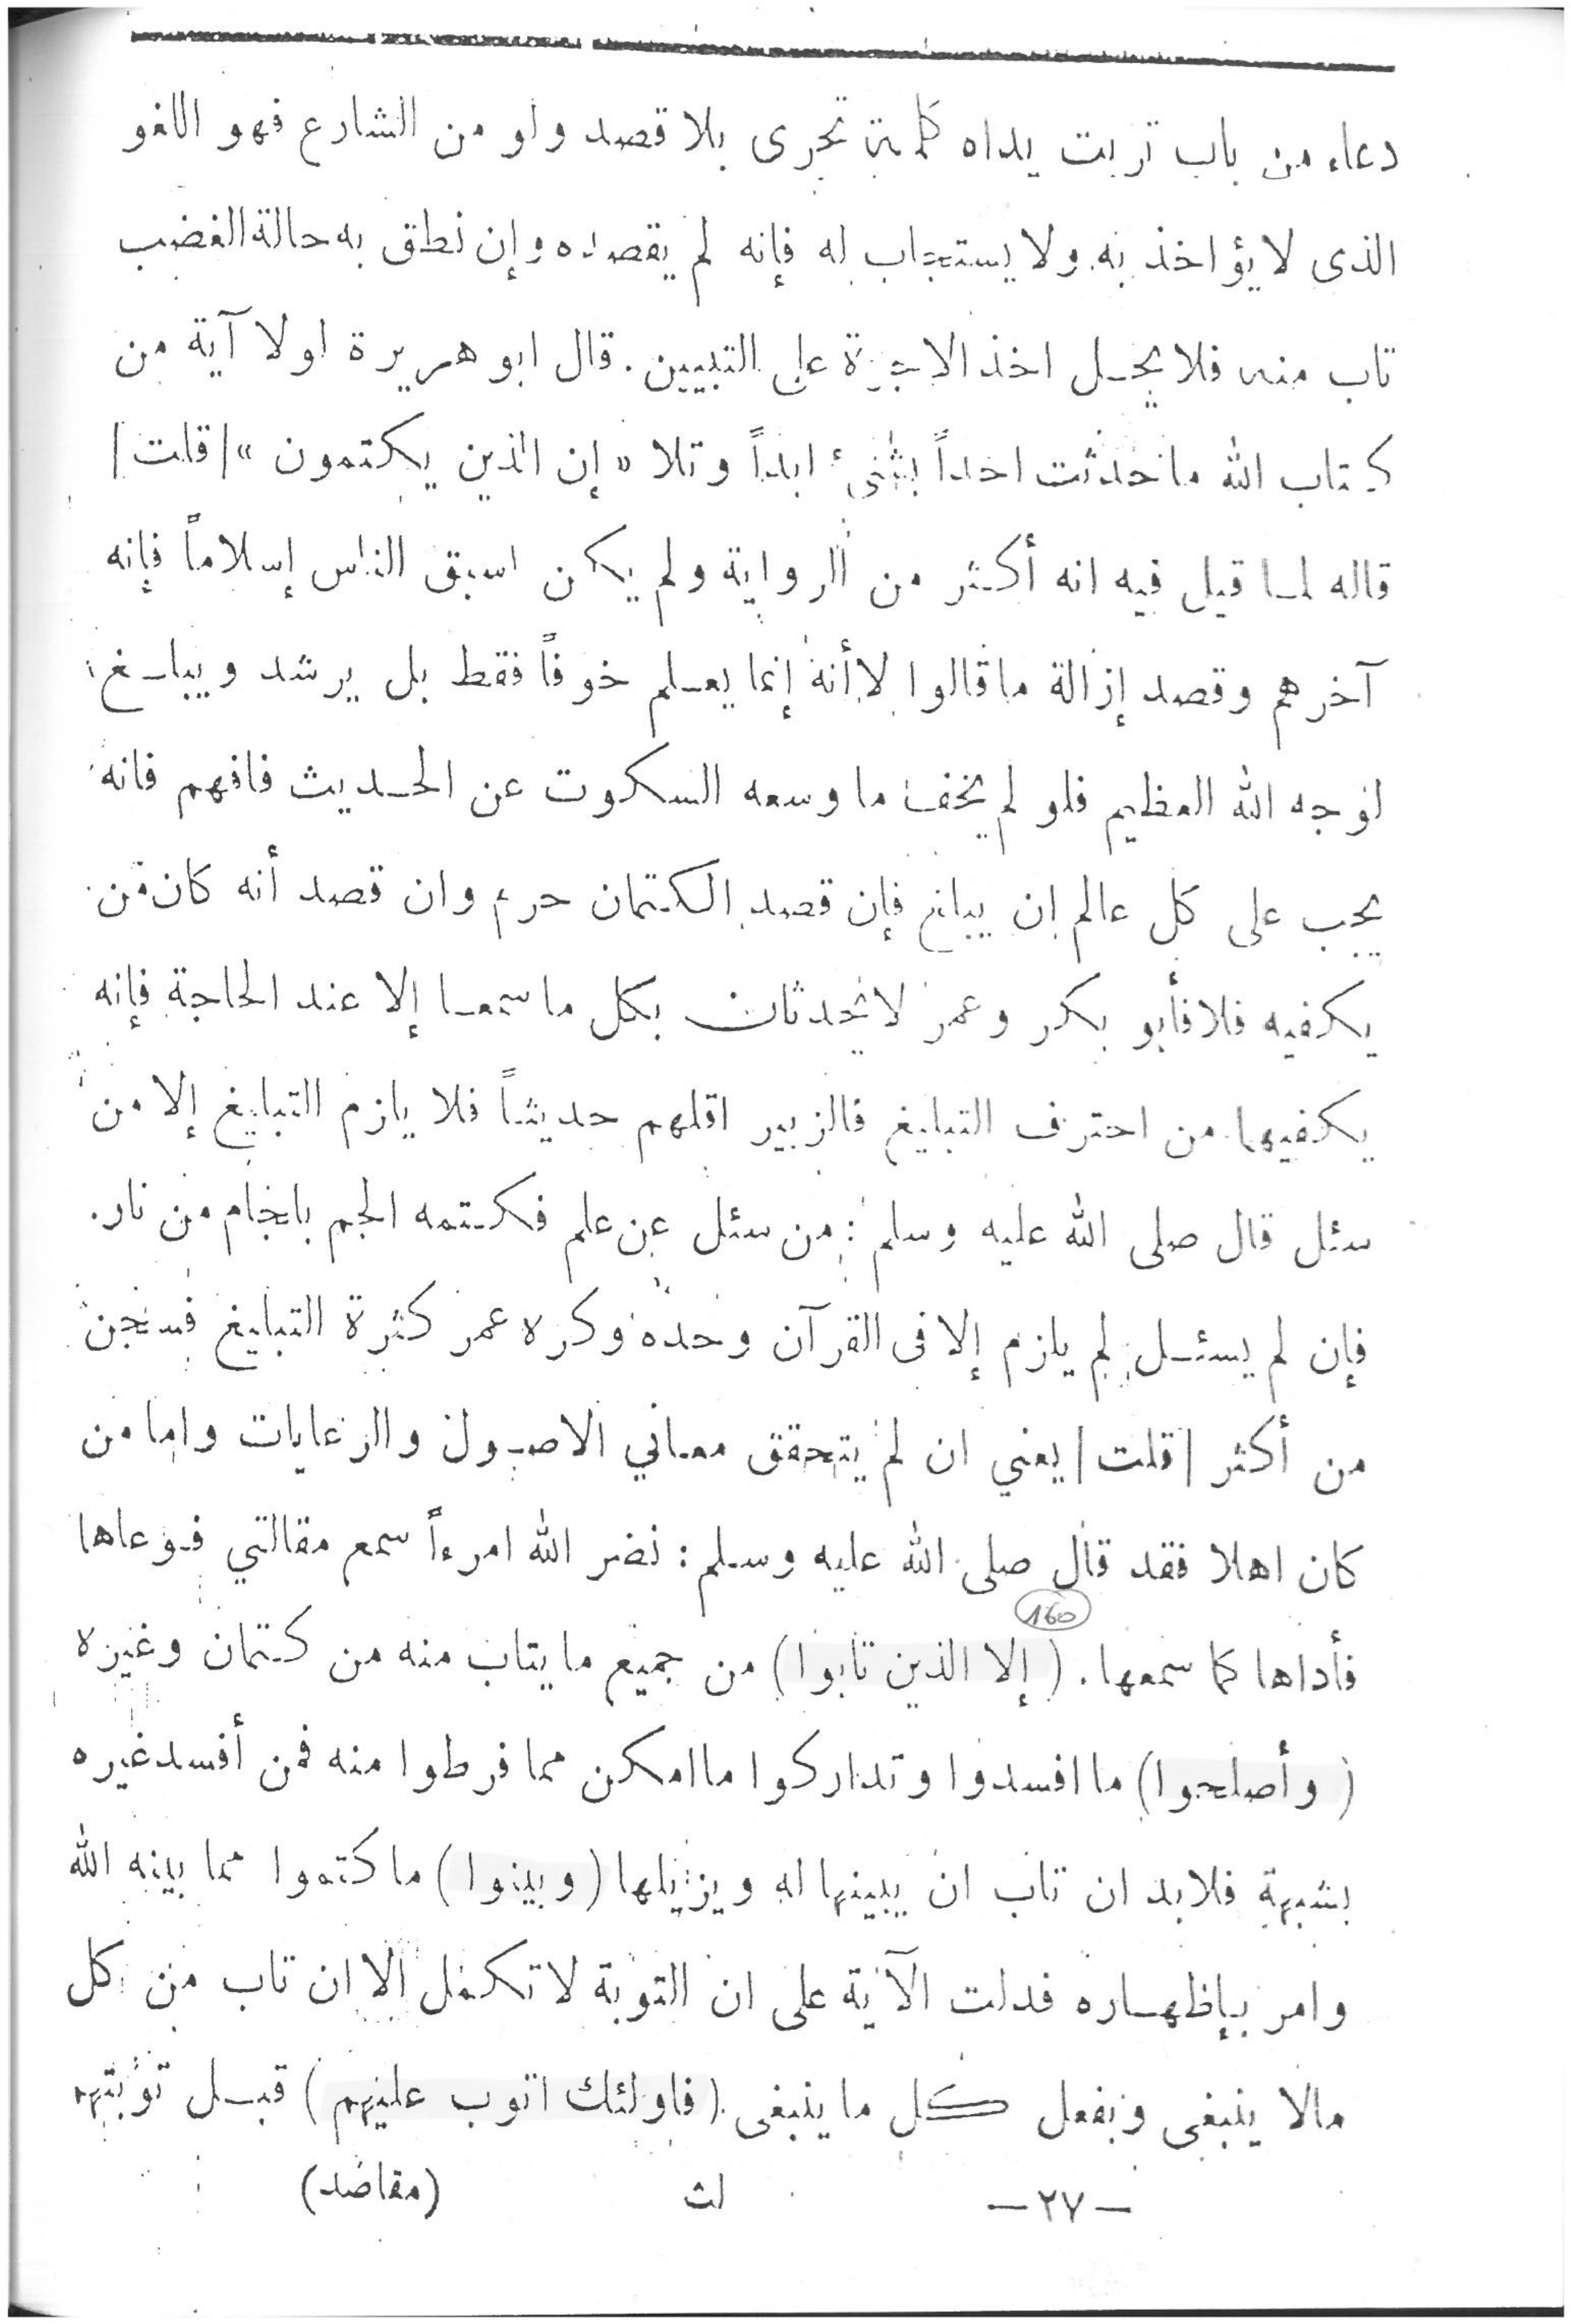 دعاء من باب تربت يداه كلمة تجرى بلا قصد ولو من الشارع فهو اللغو
الذى لا يؤاخذ به ولا يستجاب له فإنه لم يقصده وإن نطق به حالة الغضب
تاب منه فلا يحل اخذ الاجرة على التبيين. قال ابو هريرة لولا آية من
كتاب الله ما حدثت احداً بشىء ابداً وتلا «إن الذين يكتمون» |قلت|
قاله لما قيل فيه انه أكثر من الرواية ولم يكن اسبق الناس إسلاماً فإنه
آخرهم وقصد إزالة ما قالوا لا أنه إنما يعلم خوفاً فقط بل يرشد ويبلغ
لوجه الله العظيم فلو لم يخف ما وسعه السكوت عن الحديث فافهم فانه
يجب على كل عالم ان يبلغ فإن قصد الكتمان حرم وان قصد أنه كان من
يكفيه فلا فأبو بكر وعمر لا يحدثان بكل ما سمعا إلا عند الحاجة فإنه
يكفيها من احترف التبليغ فالزبير اقلهم حديثاً فلا يلزم التبليغ إلا من
سئل قال صلى الله عليه وسلم: من سئل عن علم فكتمه الجم بلجام من نار.
فإن لم يسئل لم يلزم إلا فى القرآن وحده وكره عمر كثرة التبليغ فسجن
من أكثر |قلت| يعني ان لم يتحقق معاني الاصول والرعايات واما من
كان اهلا فقد قال صلى الله عليه وسلم: نضر الله امرءاً سمع مقالتي فوعاها
160
فأداها كما سمعها. (إلا الذين تابوا) من جميع ما يتاب منه من كتمان وغيره
(وأصلحوا) ما افسدوا وتداركوا ما امكن مما فرطوا منه فمن أفسد غيره
بشبهة فلابد ان تاب ان يبينها له ويزيلها (وبينوا) ما كتموا مما بينه الله
وامر بإظهاره فدلت الآية على ان التوبة لا تكمل الا ان تاب من كل
مالا ينبغى وبفعل كل ما ينبغى (فاولئك اتوب عليهم) قبل توبتهم
—٢٧— لث (مقاصد)